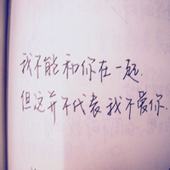 我不能和你在一起.
但这并不代表我不爱你.